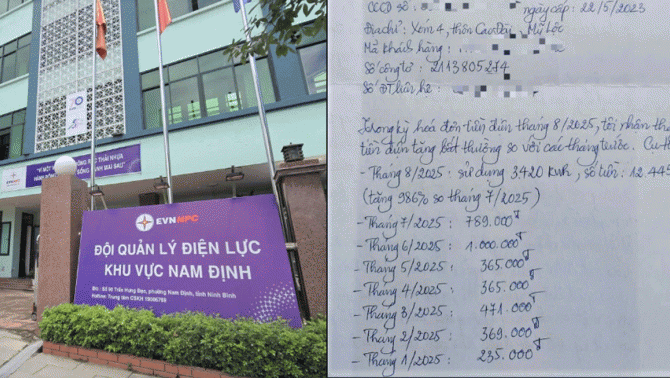 "VÌ MỘT
THẢI NHỰA
SỐNG
MAI SAU"
EVNNPC
ĐỘI QUẢN LÝ ĐIỆN LỰC
KHU VỰC NAM ĐỊNH
Đ/c : Số 97 Trần Hưng Đạo, phường Nam Định, tỉnh Ninh Bình
Hotline: Trung tâm CSKH 19006769
CCCD số : ngày cấp : 22/5/2023
Địa chỉ : Xóm 4, thôn Cao Đài, Mỹ Lộc
Mã khách hàng :
Số công tơ : 2113805274
Số ĐT liên hệ
Trong kỳ hoá đơn tiền điện tháng 8/2025, tôi nhận thấ
tiền điện tăng bất thường so với các tháng trước. Cụ th
- Tháng 8/2025 : sử dụng 3420 kwh, số tiền : 12.445
(tăng 986% so tháng 7/2025)
- Tháng 7/2025 : 789.000đ
- Tháng 6/2025 : 1.000.000đ
- Tháng 5/2025 : 365.000đ
- Tháng 4/2025 : 365.000đ
- Tháng 3/2025 : 471.000đ
- Tháng 2/2025 : 369.000đ
- Tháng 1/2025 : 235.000đ